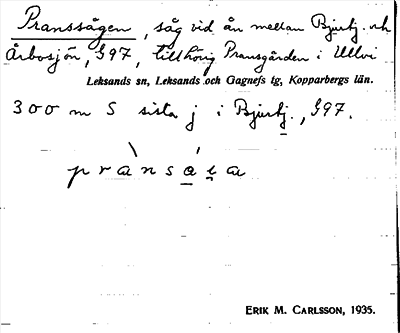 Pranssågen, såg vid ån mellan Bjurtj. och
Årbosjön, G97, tillhörig Pransgården i Ullvi
Leksands sn, Leksands och Gagnefs tg, Kopparbergs län.
300 m S sista j i Bjurtj., G97.
prànsá
ERIK M. CARLSSON, 1935.